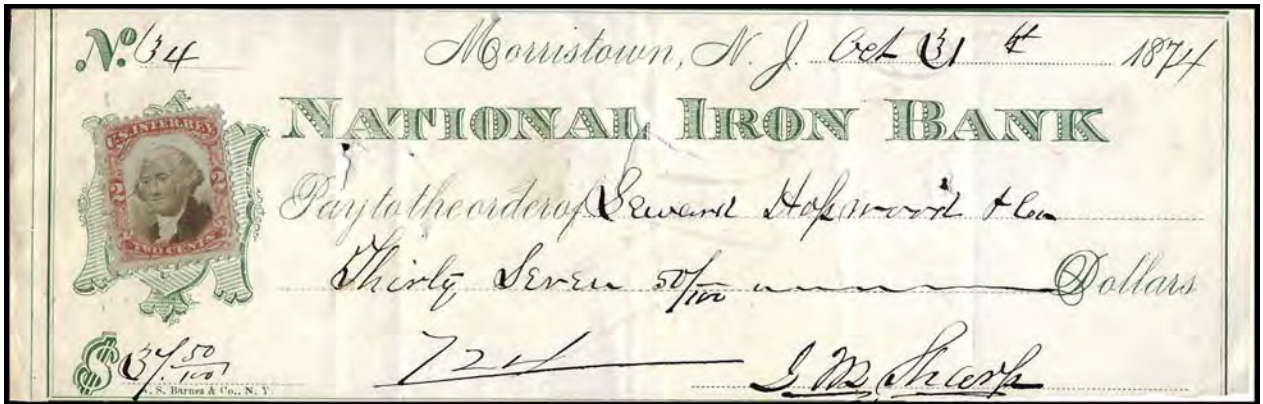 No. 34 Morristown, N. J. Oct 31st 1874
NATIONAL IRON BANK
U.S. INTER. REV.
2 2
TWO CENTS
Pay to the order of Seward Hopwood & Co
Thirty Seven 50/100 Dollars
$ 37. 50/100
J M Sharp
S. Barnes & Co., N. Y.